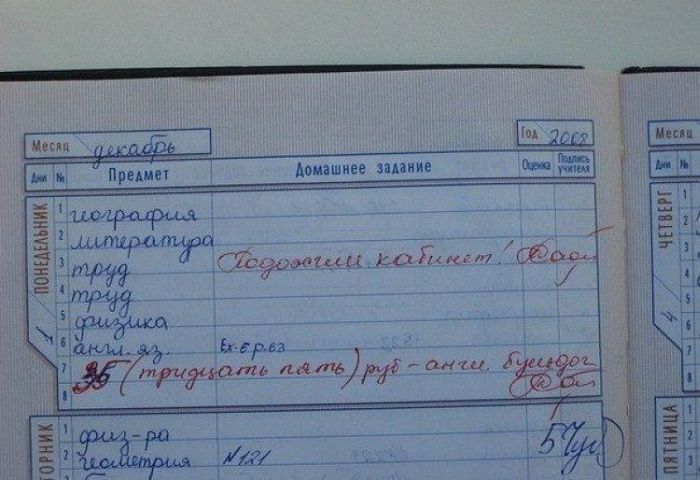 Месяц декабрь Год 2008
Дни № Предмет Домашнее задание Оценка Подпись учителя
ПОНЕДЕЛЬНИК 1
1 география
2 литература
3 труд Подожгли кабинет!
4 труд
5 физика
6 англ. яз. Ex. 6 p. 63
7 35 (тридцать пять) руб - англ. бульдог
8
ВТОРНИК
1 физ-ра 5
2 геометрия №121
Месяц
Дни №
ЧЕТВЕРГ 4
1
2
3
4
5
6
7
8
ПЯТНИЦА
1
2
3